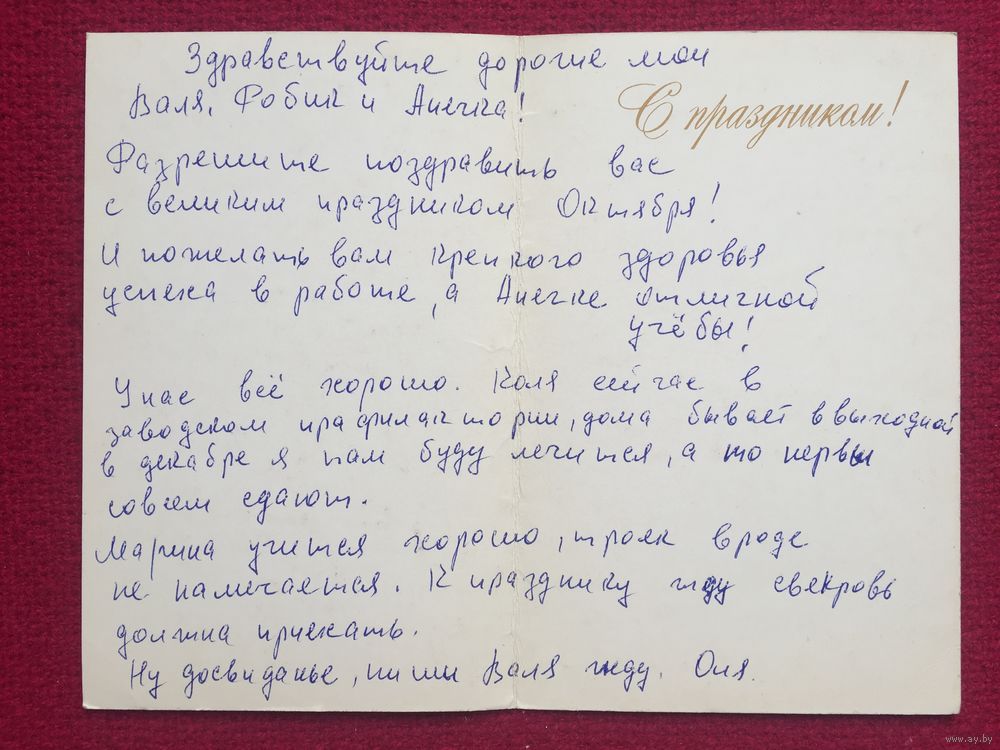 Здравствуйте дорогие мои
Валя, Фобик и Анечка!
С праздником!
Фазрешите поздравить вас
с великим праздником Октября!
И пожелать вам крепкого здоровья
успеха в работе, а Анечке отличной
учёбы!
У нас всё хорошо. Коля сейчас в
заводском прафилактории, дома бывает в выходной
в декабре я там буду лечится, а то нервы
совсем сдают.
Марина учится хорошо, троек вроде
не намечается. К празднику жду свекровь
должна приехать.
Ну досвиданье, пиши Валя жду. Оля.
www.ay.by